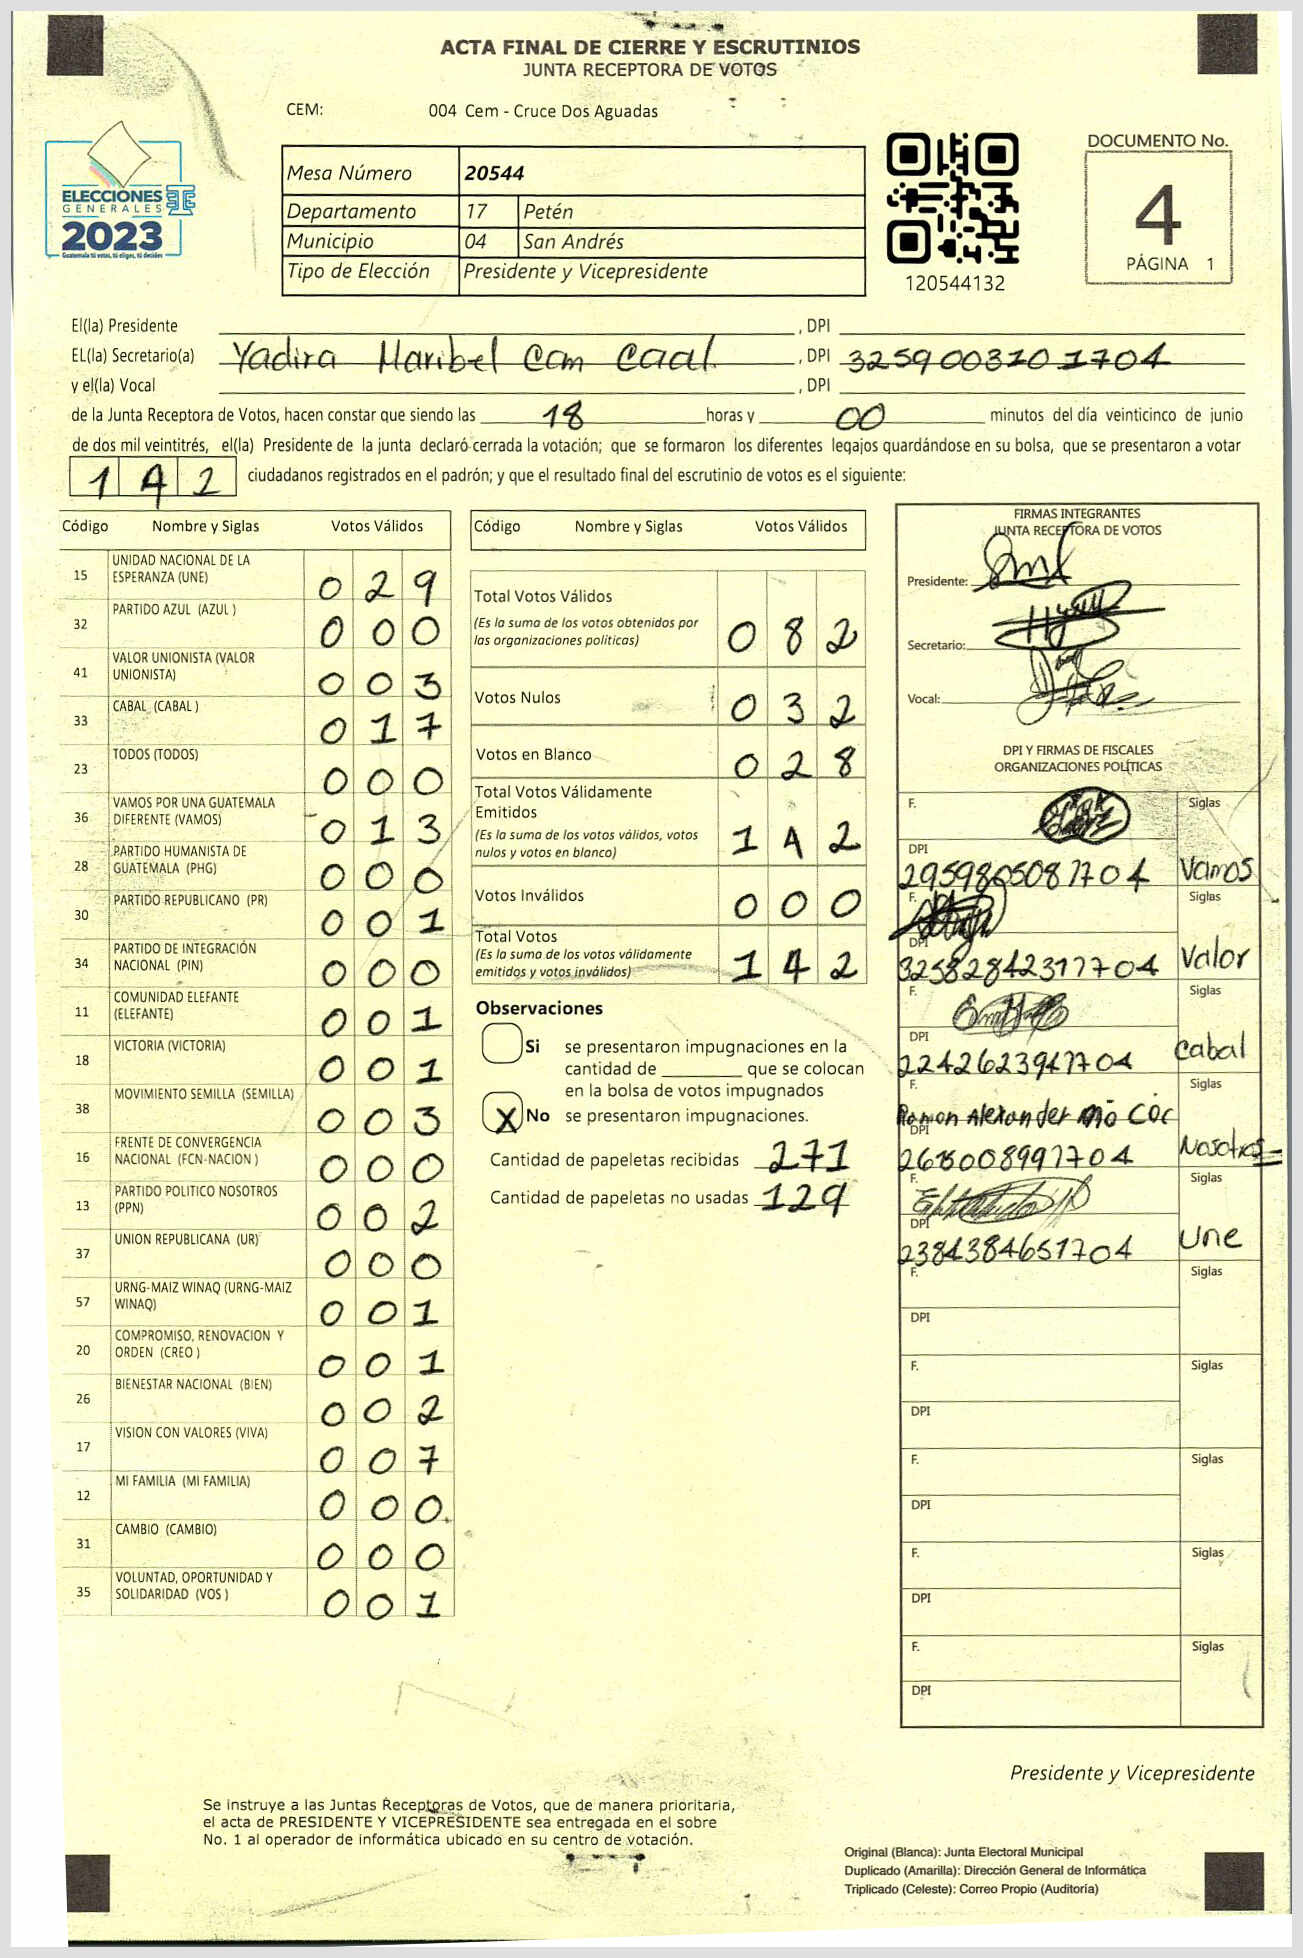 ACTA FINAL DE CIERRE Y ESCRUTINIOS
JUNTA RECEPTORA DE VOTOS
CEM: 004 Cem - Cruce Dos Aguadas
ELECCIONES
GENERALES
2023
Guatemala tú votas, tú eliges, tú decides
Mesa Número 20544
Departamento 17 Petén
Municipio 04 San Andrés
Tipo de Elección Presidente y Vicepresidente
120544132
DOCUMENTO No.
4
PÁGINA 1
El(la) Presidente , DPI
EL(la) Secretario(a) Yadira Maribel Cam Caal , DPI 3259003101704
y el(la) Vocal , DPI
de la Junta Receptora de Votos, hacen constar que siendo las 18 horas y 00 minutos del día veinticinco de junio
de dos mil veintitrés, el(la) Presidente de la junta declaró cerrada la votación; que se formaron los diferentes legajos guardándose en su bolsa, que se presentaron a votar
142 ciudadanos registrados en el padrón; y que el resultado final del escrutinio de votos es el siguiente:
Código Nombre y Siglas Votos Válidos
15 UNIDAD NACIONAL DE LA ESPERANZA (UNE) 029
32 PARTIDO AZUL (AZUL ) 000
41 VALOR UNIONISTA (VALOR UNIONISTA) 003
33 CABAL (CABAL ) 017
23 TODOS (TODOS) 000
36 VAMOS POR UNA GUATEMALA DIFERENTE (VAMOS) 013
28 PARTIDO HUMANISTA DE GUATEMALA (PHG) 000
30 PARTIDO REPUBLICANO (PR) 001
34 PARTIDO DE INTEGRACIÓN NACIONAL (PIN) 000
11 COMUNIDAD ELEFANTE (ELEFANTE) 001
18 VICTORIA (VICTORIA) 001
38 MOVIMIENTO SEMILLA (SEMILLA) 003
16 FRENTE DE CONVERGENCIA NACIONAL (FCN-NACION ) 000
13 PARTIDO POLITICO NOSOTROS (PPN) 002
37 UNION REPUBLICANA (UR) 000
57 URNG-MAIZ WINAQ (URNG-MAIZ WINAQ) 001
20 COMPROMISO, RENOVACION Y ORDEN (CREO ) 001
26 BIENESTAR NACIONAL (BIEN) 002
17 VISION CON VALORES (VIVA) 007
12 MI FAMILIA (MI FAMILIA) 000
31 CAMBIO (CAMBIO) 000
35 VOLUNTAD, OPORTUNIDAD Y SOLIDARIDAD (VOS ) 001
Código Nombre y Siglas Votos Válidos
Total Votos Válidos 082
(Es la suma de los votos obtenidos por
las organizaciones políticas)
Votos Nulos 032
Votos en Blanco 028
Total Votos Válidamente
Emitidos 142
(Es la suma de los votos válidos, votos
nulos y votos en blanco)
Votos Inválidos 000
Total Votos 142
(Es la suma de los votos válidamente
emitidos y votos inválidos)
Observaciones
Si se presentaron impugnaciones en la
cantidad de ________ que se colocan
en la bolsa de votos impugnados
X No se presentaron impugnaciones.
Cantidad de papeletas recibidas 271
Cantidad de papeletas no usadas 129
FIRMAS INTEGRANTES
JUNTA RECEPTORA DE VOTOS
Presidente:
Secretario:
Vocal:
DPI Y FIRMAS DE FISCALES
ORGANIZACIONES POLÍTICAS
F. Siglas
DPI
2959805081704 Vamos
F. Siglas
DPI
3258284231704 Valor
F. Siglas
DPI
2242623941704 Cabal
F. Siglas
Ramon Alexander Mo Coc
DPI
2618008991704 Nosotros
F. Siglas
DPI
2384384651704 Une
F. Siglas
DPI
F. Siglas
DPI
F. Siglas
DPI
F. Siglas
DPI
F. Siglas
DPI
Presidente y Vicepresidente
Se instruye a las Juntas Receptoras de Votos, que de manera prioritaria,
el acta de PRESIDENTE Y VICEPRESIDENTE sea entregada en el sobre
No. 1 al operador de informática ubicado en su centro de votación.
Original (Blanca): Junta Electoral Municipal
Duplicado (Amarilla): Dirección General de Informática
Triplicado (Celeste): Correo Propio (Auditoría)